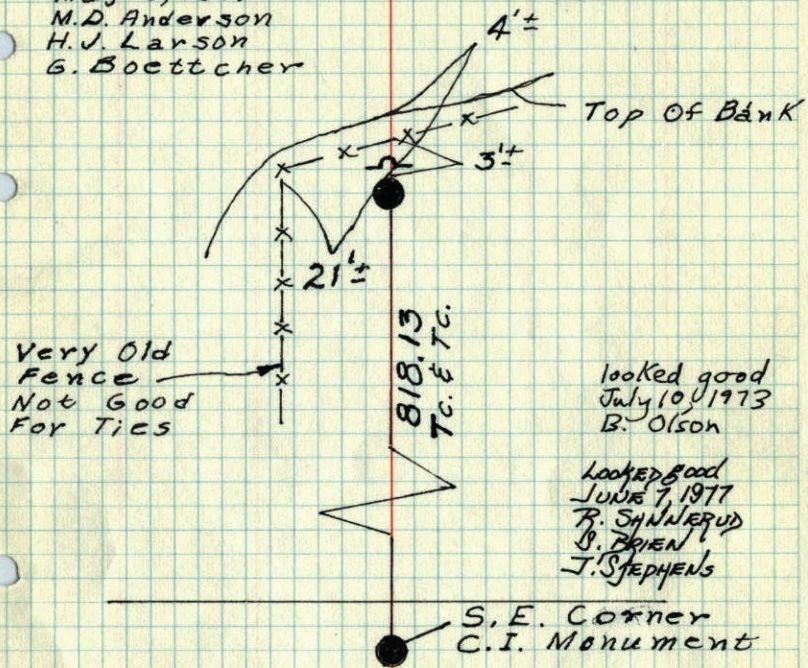 M.D. Anderson
H.J. Larson
G. Boettcher
4'±
Top Of Bank
3'±
21'±
818.13
Tc. & Tc.
Very Old
Fence
Not Good
For Ties
looked good
July 10, 1973
B. Olson
Looked good
JUNE 7, 1977
R. SANNERUD
B. BRIEN
J. STEPHENS
S.E. Corner
C.I. Monument